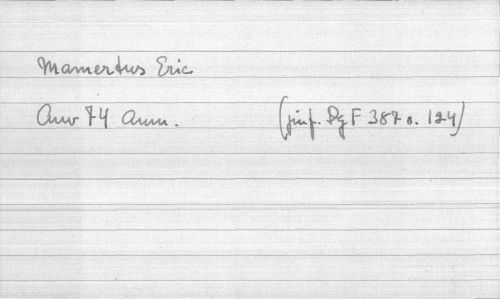 Mamertus Eric
Anv 74 Anm. (jmf. Dg F 387 o. 124)